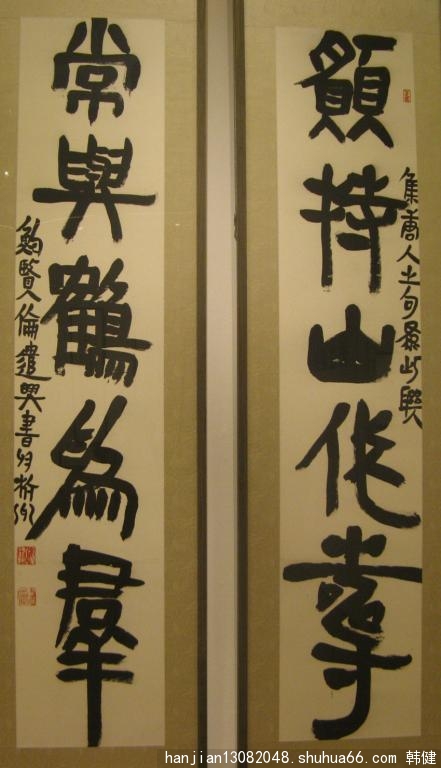 願持山作壽
集唐人之句為此聯
常與鶴為羣
賢倫遣興書
hanjian13082048.shuhua66.com 韩健